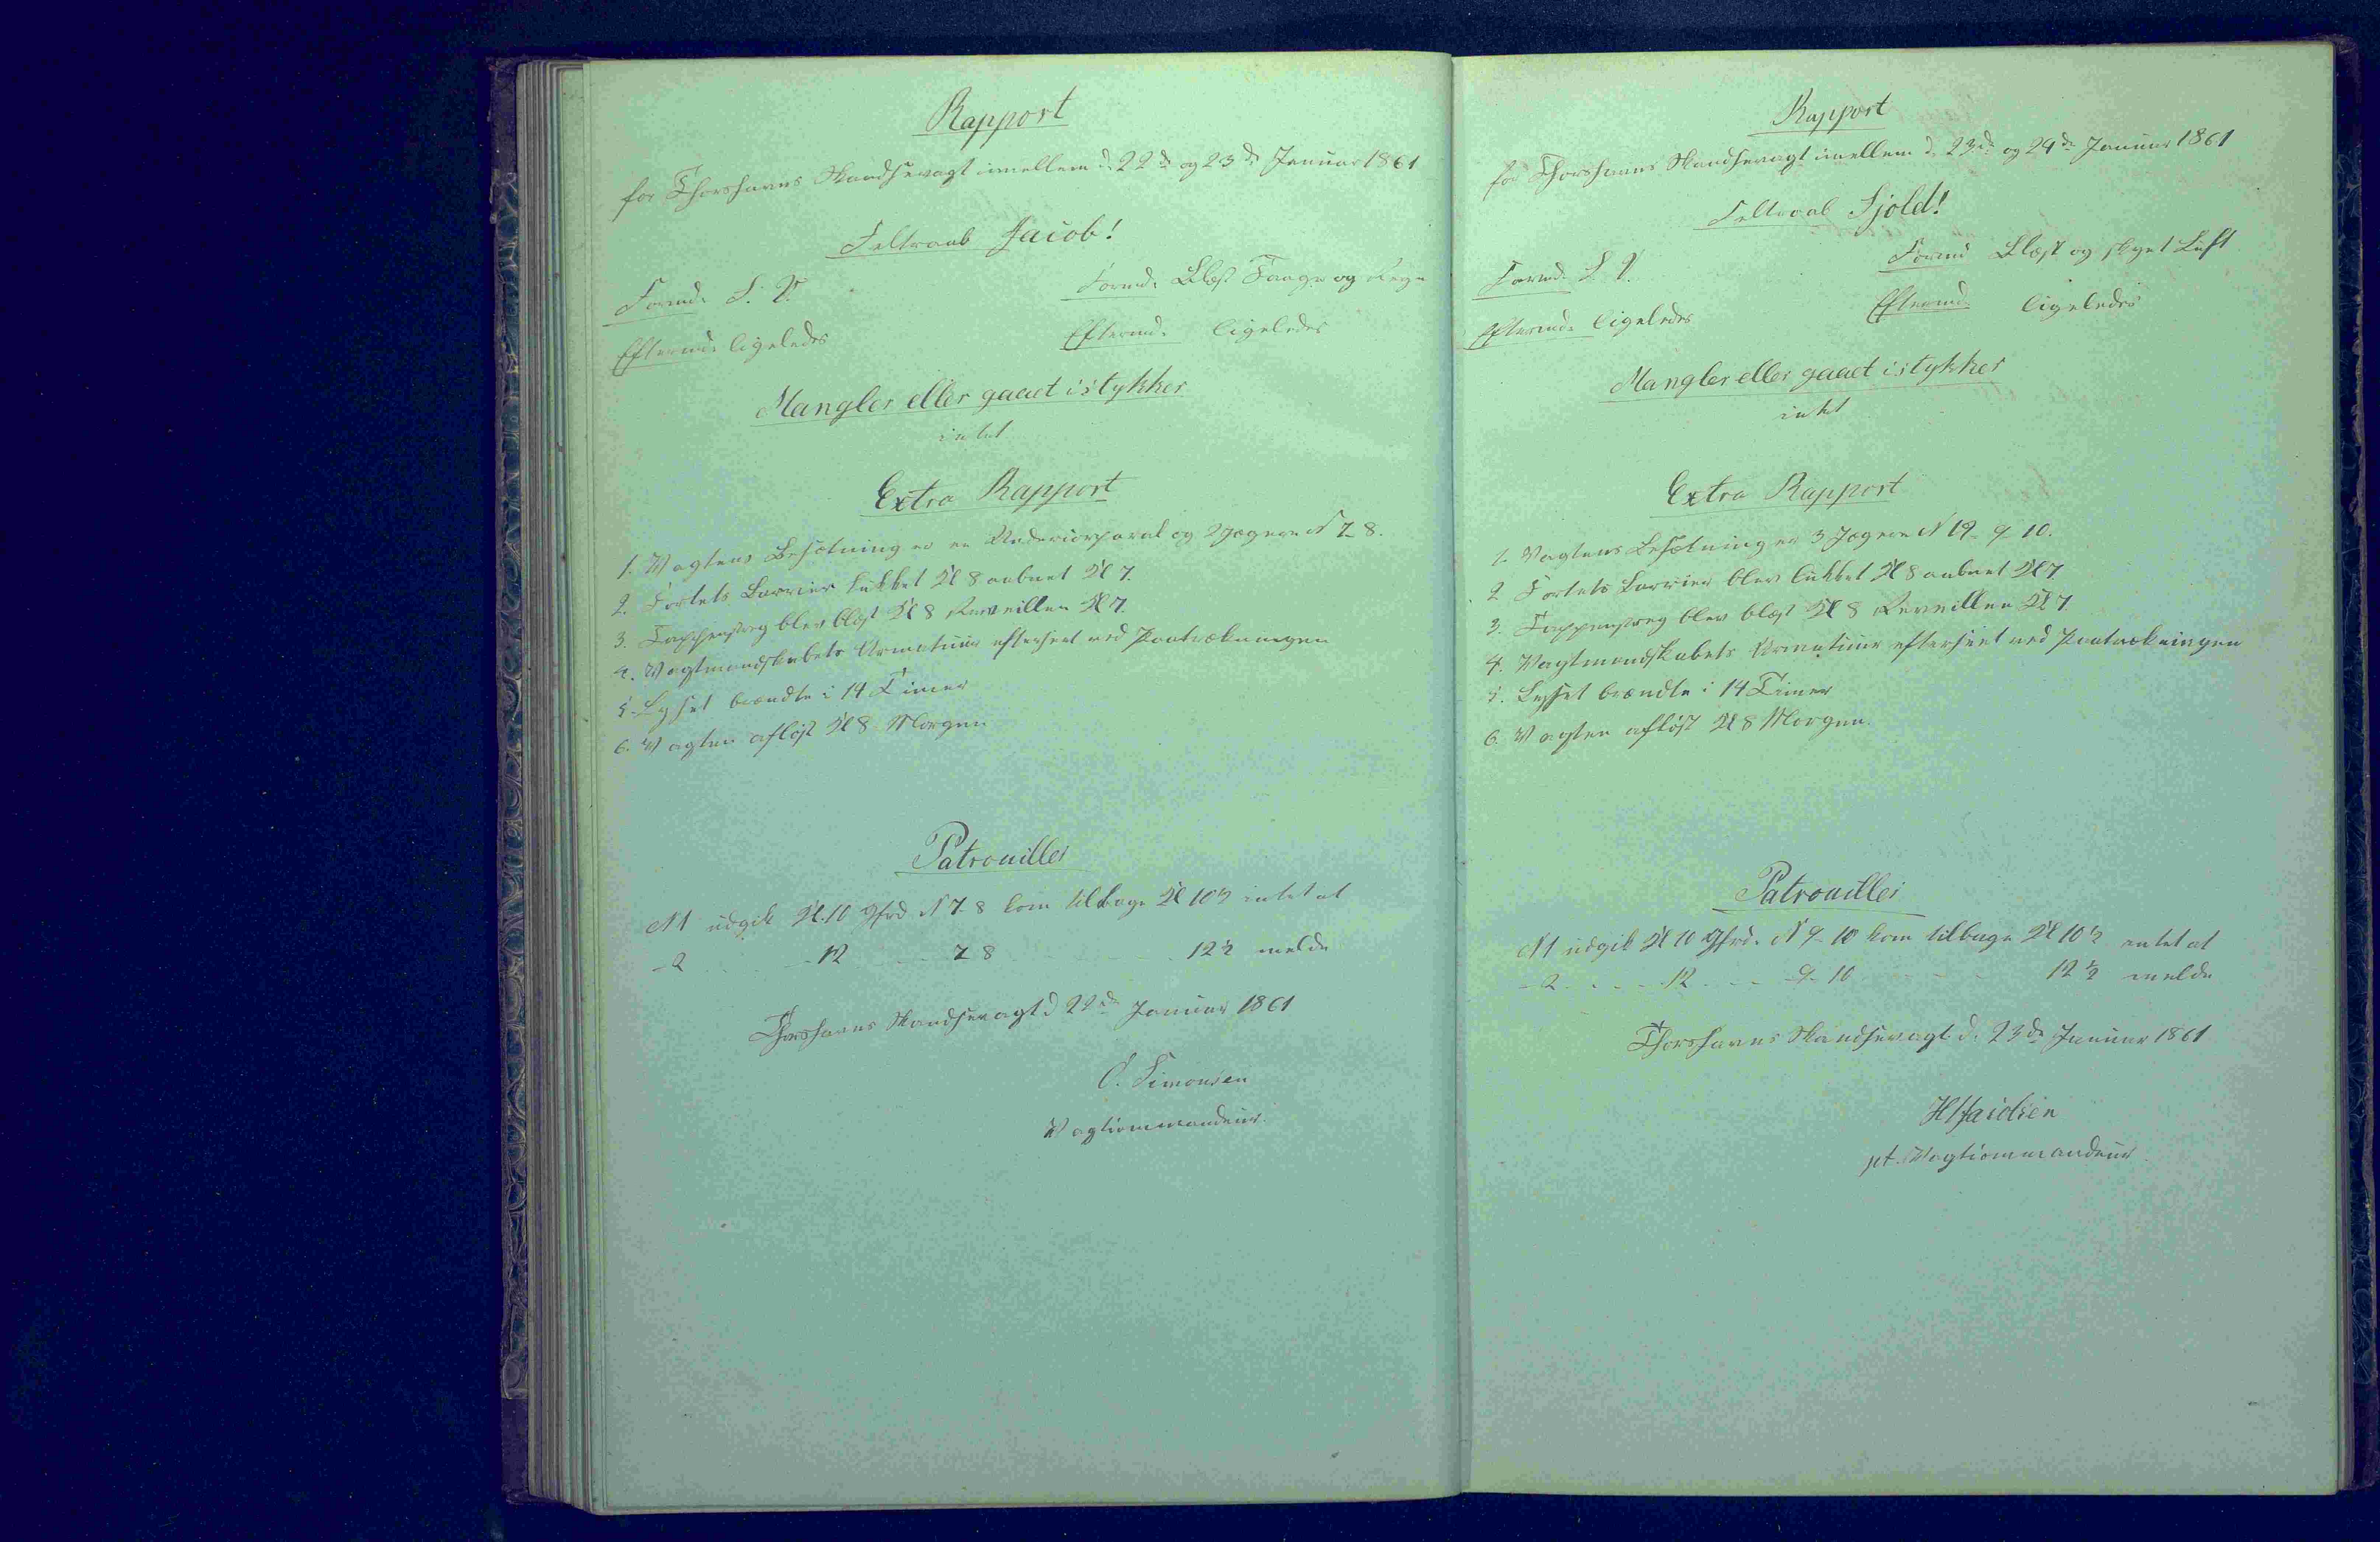 Rapport
for Thorshavns Skandsevagt imellem d. 22de og 23de Januar 1861
Feltraab Jacob!
Formd. S. V.
Formd. Blæst Taage og Regn
Eftermd. ligeledes
Eftermd. ligeledes
Mangler eller gaaet istykker
intet
Extra Rapport
1. Vagtens Besætning er en Undercorporal og 2 Jægere N 7_8.
2. Fortets Barrier lukket Kl 8 aabnet Kl 7.
3. Tappenstreg blev blæst Kl 8 Reveillen Kl 7.
4. Vagtmandskabets Armatuur efterseet ved Paatrækningen
5. Lyset brændte i 14 Timer
6. Vagten afløst Kl 8 Morgen
Patrouiller
N 1 udgik Kl. 10 Gfrd N 7-8 kom tilbage Kl 10½ intet at
- 2 - 12 - 7 8 - 12½ melde
Thorshavns Skandsevagt d 22de Januar 1861
C. Simonsen
Vagtcommandeur.
Rapport
for Thorshavns Skandsevagt imellem d. 23de og 24de Januar 1861
Feltraab Sjold!
Formd. S. V.
Formd Blæst og skyet Luft
Eftermd. ligeledes
Eftermd. ligeledes
Mangler eller gaaet istykker
intet
Extra Rapport
1. Vagtens Besætning er 3 Jægere N 19_9_10.
2. Fortets Barrier blev lukket Kl 8 aabnet Kl 7
3. Tappenstreg blev blæst Kl 8 Reveillen Kl 7
4. Vagtmandskabets Armatuur efterseet ved Paatrækningen
5. Lyset brændte i 14 Timer
6. Vagten afløst Kl 8 Morgen.
Patrouiller
N 1 udgik Kl 10 Gfrd. N 9-10 kom tilbage Kl 10½ intet at
- 2 - 12 - 9-10 - 12½ melde
Thorshavns Skandsevagt d. 23de Januar 1861
pt. Vagtcommandeur